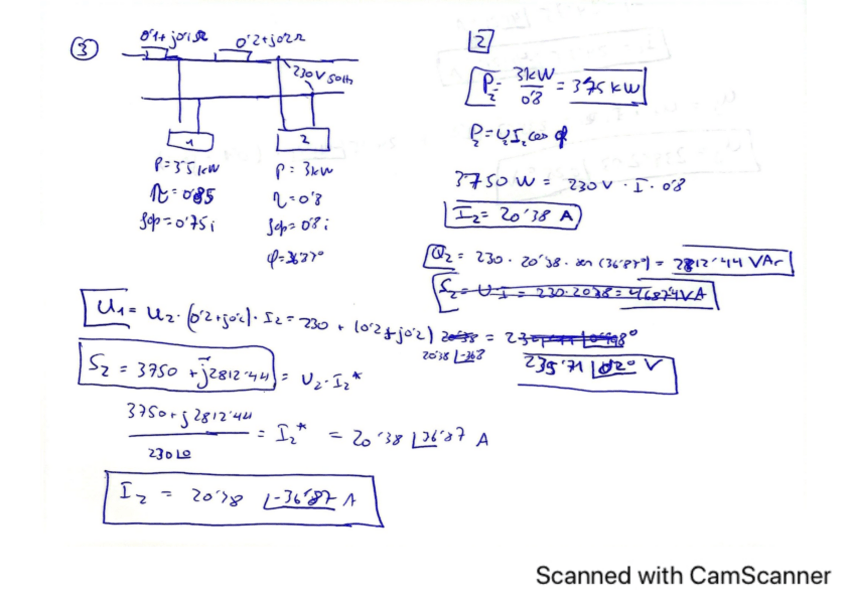 3
0'1+j0'1Ω 0'2+j0'2Ω
230V 50Hz
1 2
P=3'5 kW P=3kW
η=0'85 η=0'8
fdp=0'75 i fdp=0'8 i
φ=36'87°
2
P₂= 3kW / 0'8 = 3'75 kW
P₂=U₂I₂cos φ
3750 W = 230V · I · 0'8
I₂= 20'38 A
Q₂= 230 · 20'38 · sen (36'87°) = 2812'44 VAr
S₂= U·I = 230·20'38 = 4687'4 VA
U₁= U₂·(0'2+j0'2)·I₂ = 230 + (0'2+j0'2) 20'38 =
20'38 ∟-36'8
235'71 V
S₂ = 3750 + j2812'44 = U₂·I₂*
3750+j2812'44 / 230∟0 = I₂* = 20'38 ∟36'87 A
I₂ = 20'38 ∟-36'87 A
Scanned with CamScanner